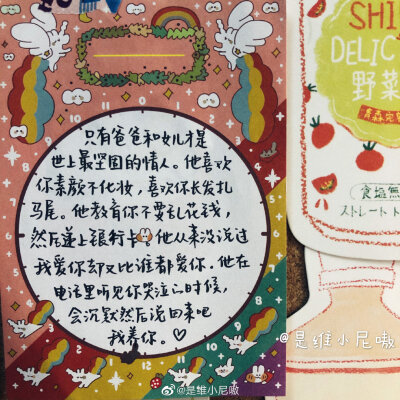 只有爸爸和女儿才是
世上最坚固的情人。他喜欢
你素颜不化妆，喜欢你长发扎
马尾。他教育你不要乱花钱，
然后递上银行卡 他从来没说过
我爱你却又比谁都爱你。他在
电话里听见你哭泣的时候，
会沉默然后说回来吧
我养你。♡
SHI
DELIC
野菜
食塩無
ストレート ト
@是维小尼嗷
@是维小尼嗷